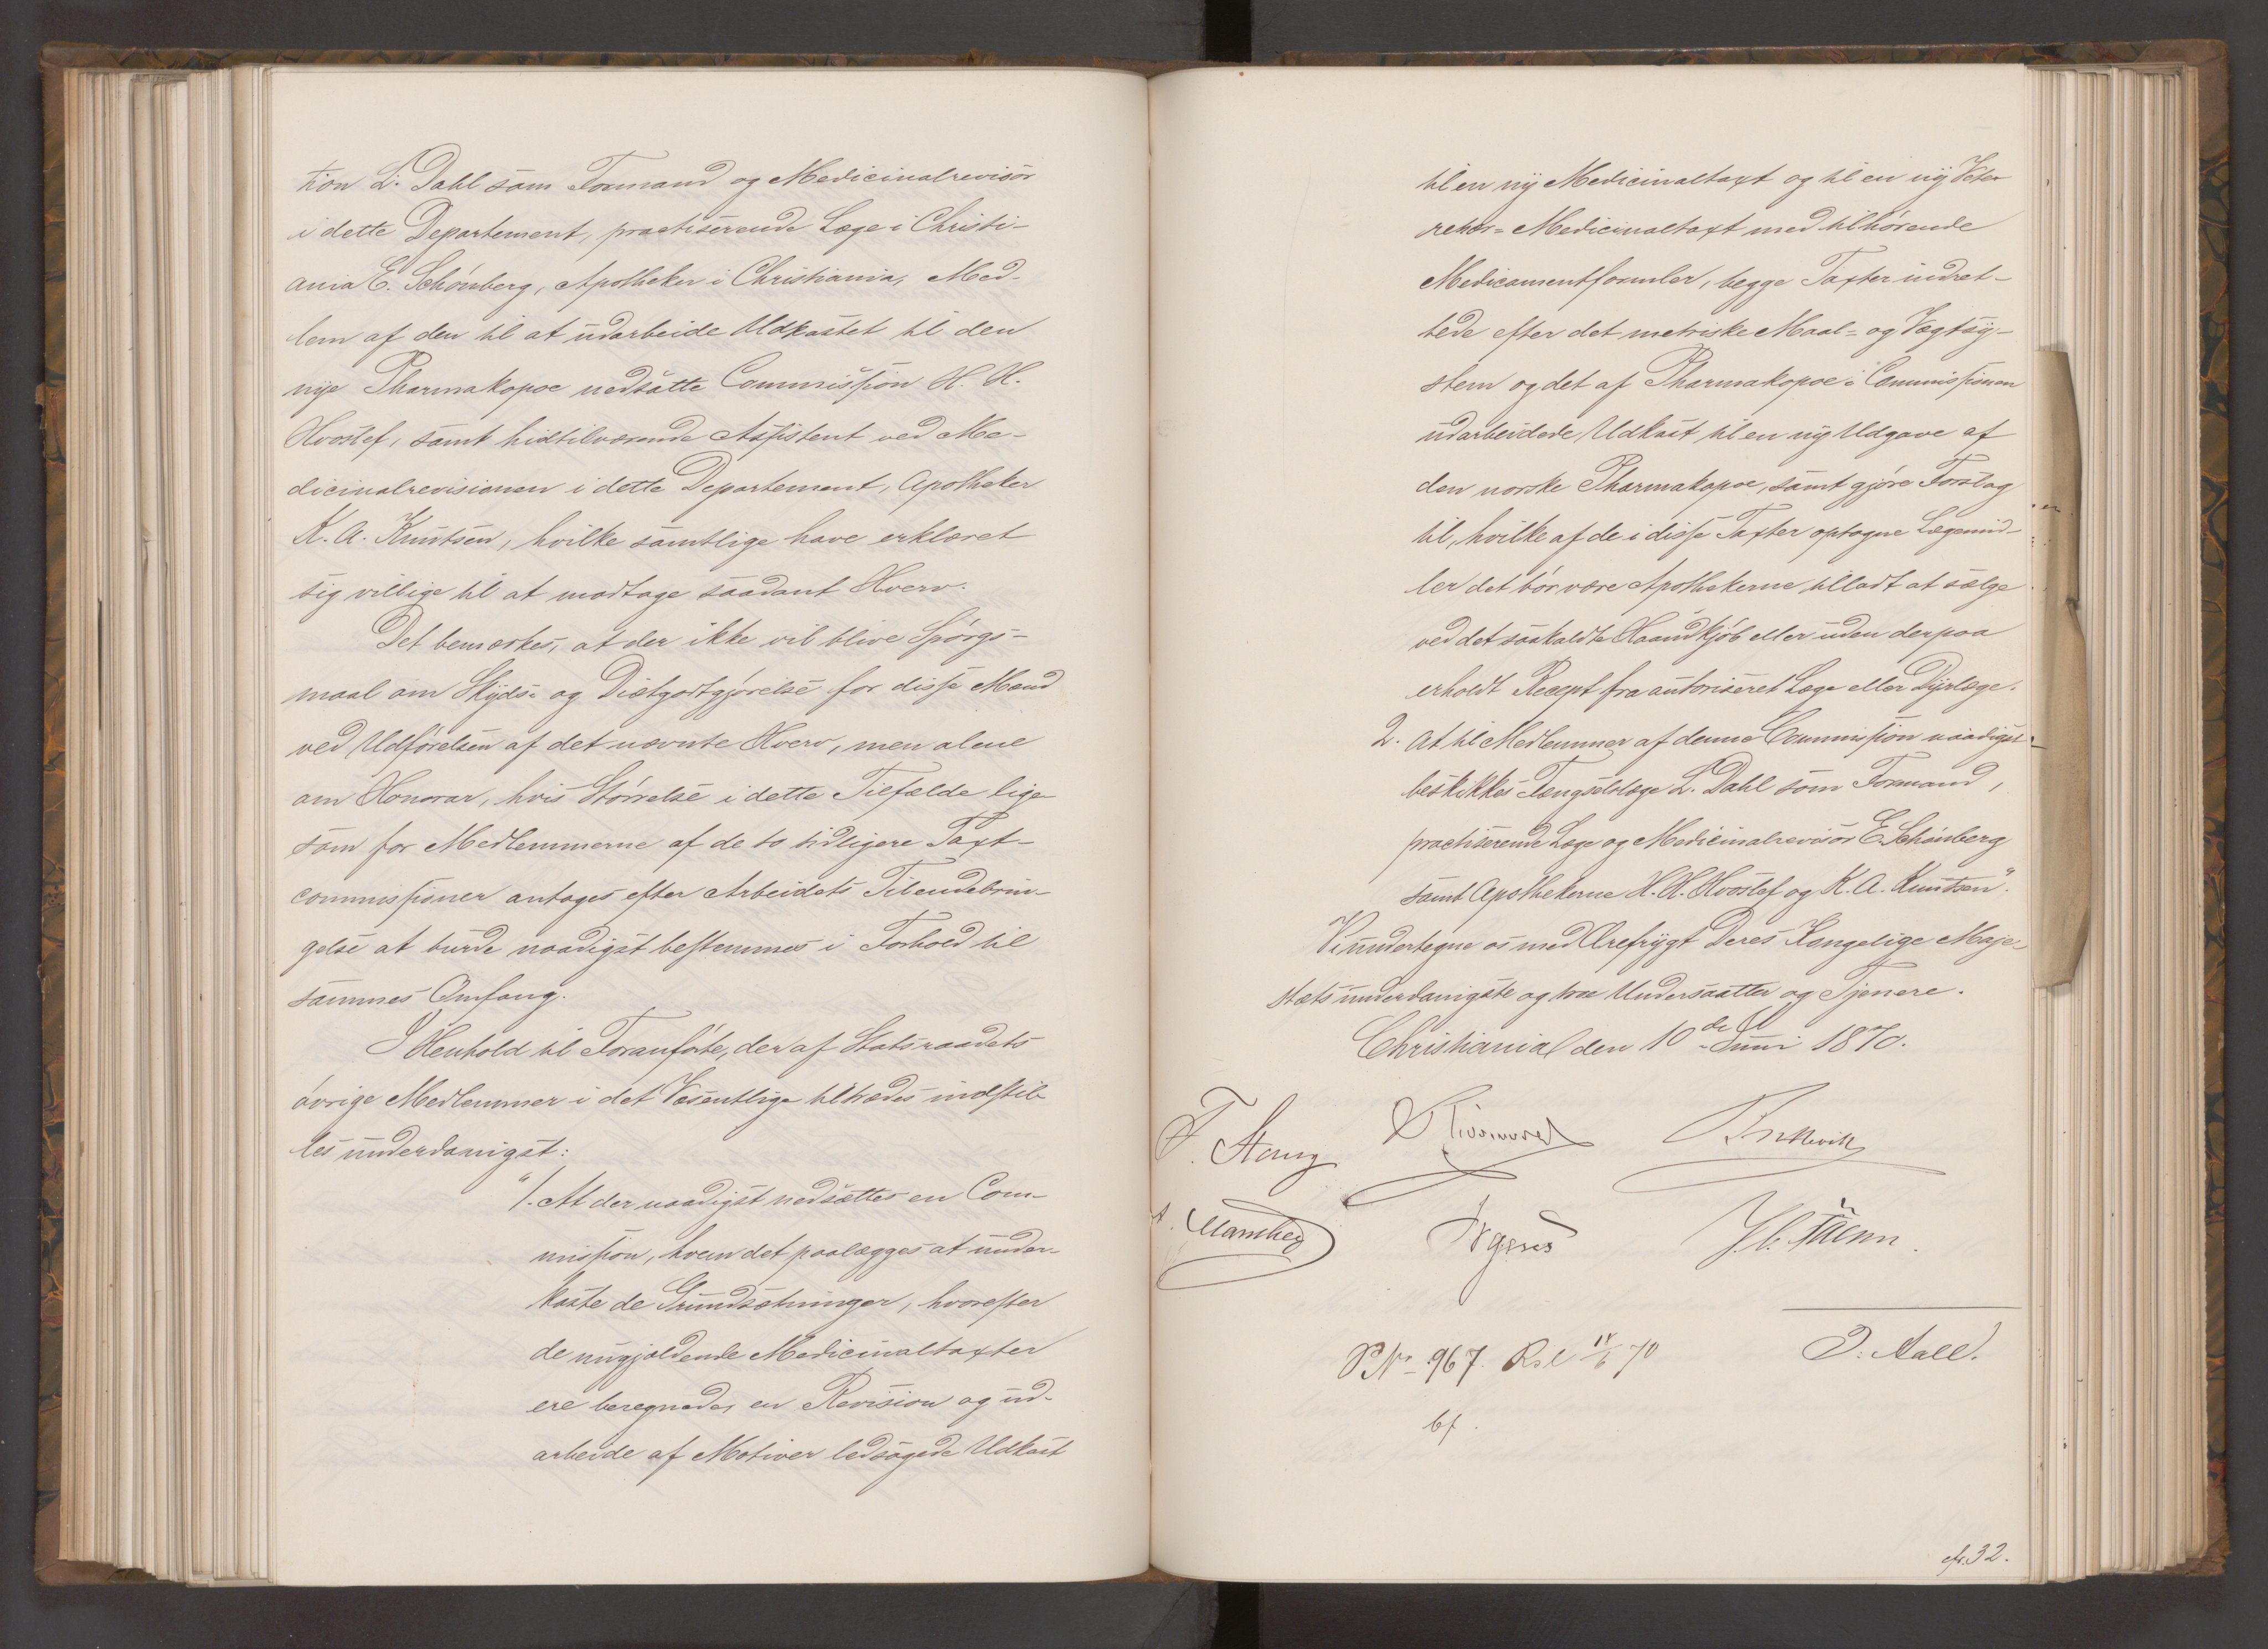 tion L. Dahl som Formand og Medicinalrevisor
i dette Departement, practiserende Læge i Christi-
ania E. Schönberg, Apotheker i Christiania, Med-
lem af den til at udarbeide Udkastet til den
nye Pharmakopoe nedsatte Commission H. H.
Hvoslef, samt hidtilværende Assistent ved Me-
dicinalrevisionen i dette Departement, Apotheker
K. A. Knutsen, hvilke samtlige have erklæret
sig villige til at modtage saadant Hverv.
Det bemærkes, at der ikke vil blive Spørgs-
maal om Skyds- og Diætgodtgjørelse for disse Mænd
ved Udførelsen af det nævnte Hverv, men alene
om Honorar, hvis Størrelse i dette Tilfælde lige
som for Medlemmerne af de to tidligere Taxt-
commissioner antages efter Arbeidets Tilendebrin-
gelse at burde naadigst bestemmes i Forhold til
sammes Omfang.
I Henhold til Foranførte, der af Statsraadets
øvrige Medlemmer i det Væsentlige tiltrædes indstil-
les underdanigst:
"1. At der naadigst nedsættes en Com-
mission, hvem det paalægges at under-
kaste de Grundsætninger, hvorefter
de nugjældende Medicinaltaxter
ere beregnede, en Revision og ud-
arbeide af Motiver ledsagede Udkast
til en ny Medicinaltaxt og til en ny Vete-
rinær-Medicinaltaxt med tilhørende
Medicamentformler, begge Taxter indret-
tede efter det metriske Maal- og Vægtsy-
stem og det af Pharmakopoe-Commissionen
udarbeidede Udkast til en ny Udgave af
den norske Pharmakopoe, samt gjøre Forslag
til, hvilke af de i disse Taxter optagne Lægemid-
ler det bør være Apothekerne tilladt at sælge
ved det saakaldte Haandkjøb eller uden derpaa
erholdt Recept fra autoriseret Læge eller Dyrlæge.
2. At til Medlemmer af denne Commission naadigst
beskikkes Fængselslæge L. Dahl som Formand,
practiserende Læge og Medicinalrevisor E. Schönberg
samt Apothekerne H. H. Hvoslef og K. A. Knutsen".
Vi undertegne os med Ærefrygt Deres Kongelige Maje-
stæts underdanigste og troe Undersaatter og Tjenere.
Christiania den 10de Juni 1870.
F. Stang
Manthey Irgens
P. No 967. Rsl 11/6 70 D. Aall.
bf.
cfr. 32.